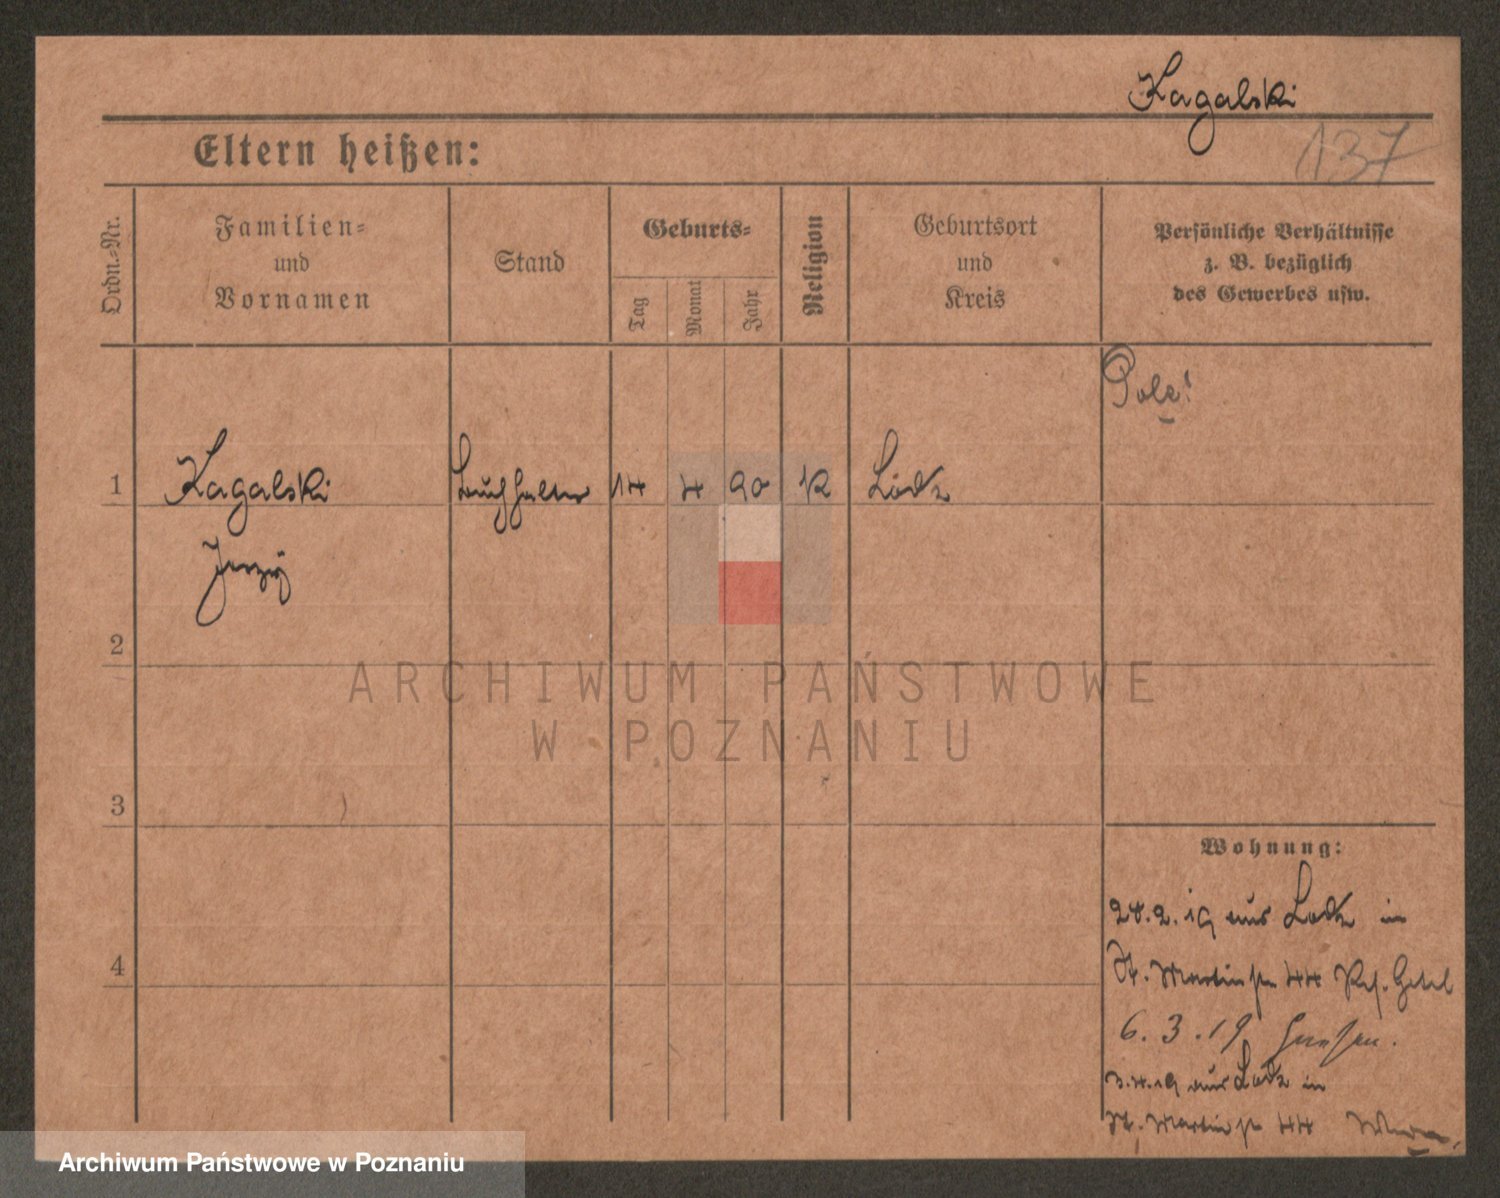 Kagalski
137
Eltern heißen:
Ordn.-Nr.
Familien-
und
Vornamen
Stand
Geburts-
Tag
Monat
Jahr
Religion
Geburtsort
und
Kreis
Persönliche Verhältnisse
z. B. bezüglich
des Gewerbes usw.
Pole!
1 Kagalski Buchhalter 14 4 90 K Lodz
Jerzy
2
3
4
Wohnung:
28.2.19 aus Lodz in
St. Martinstr 44
6.3.19
3.4.19 aus Lodz in
St. Martinstr 44
ARCHIWUM PAŃSTWOWE
W POZNANIU
Archiwum Państwowe w Poznaniu